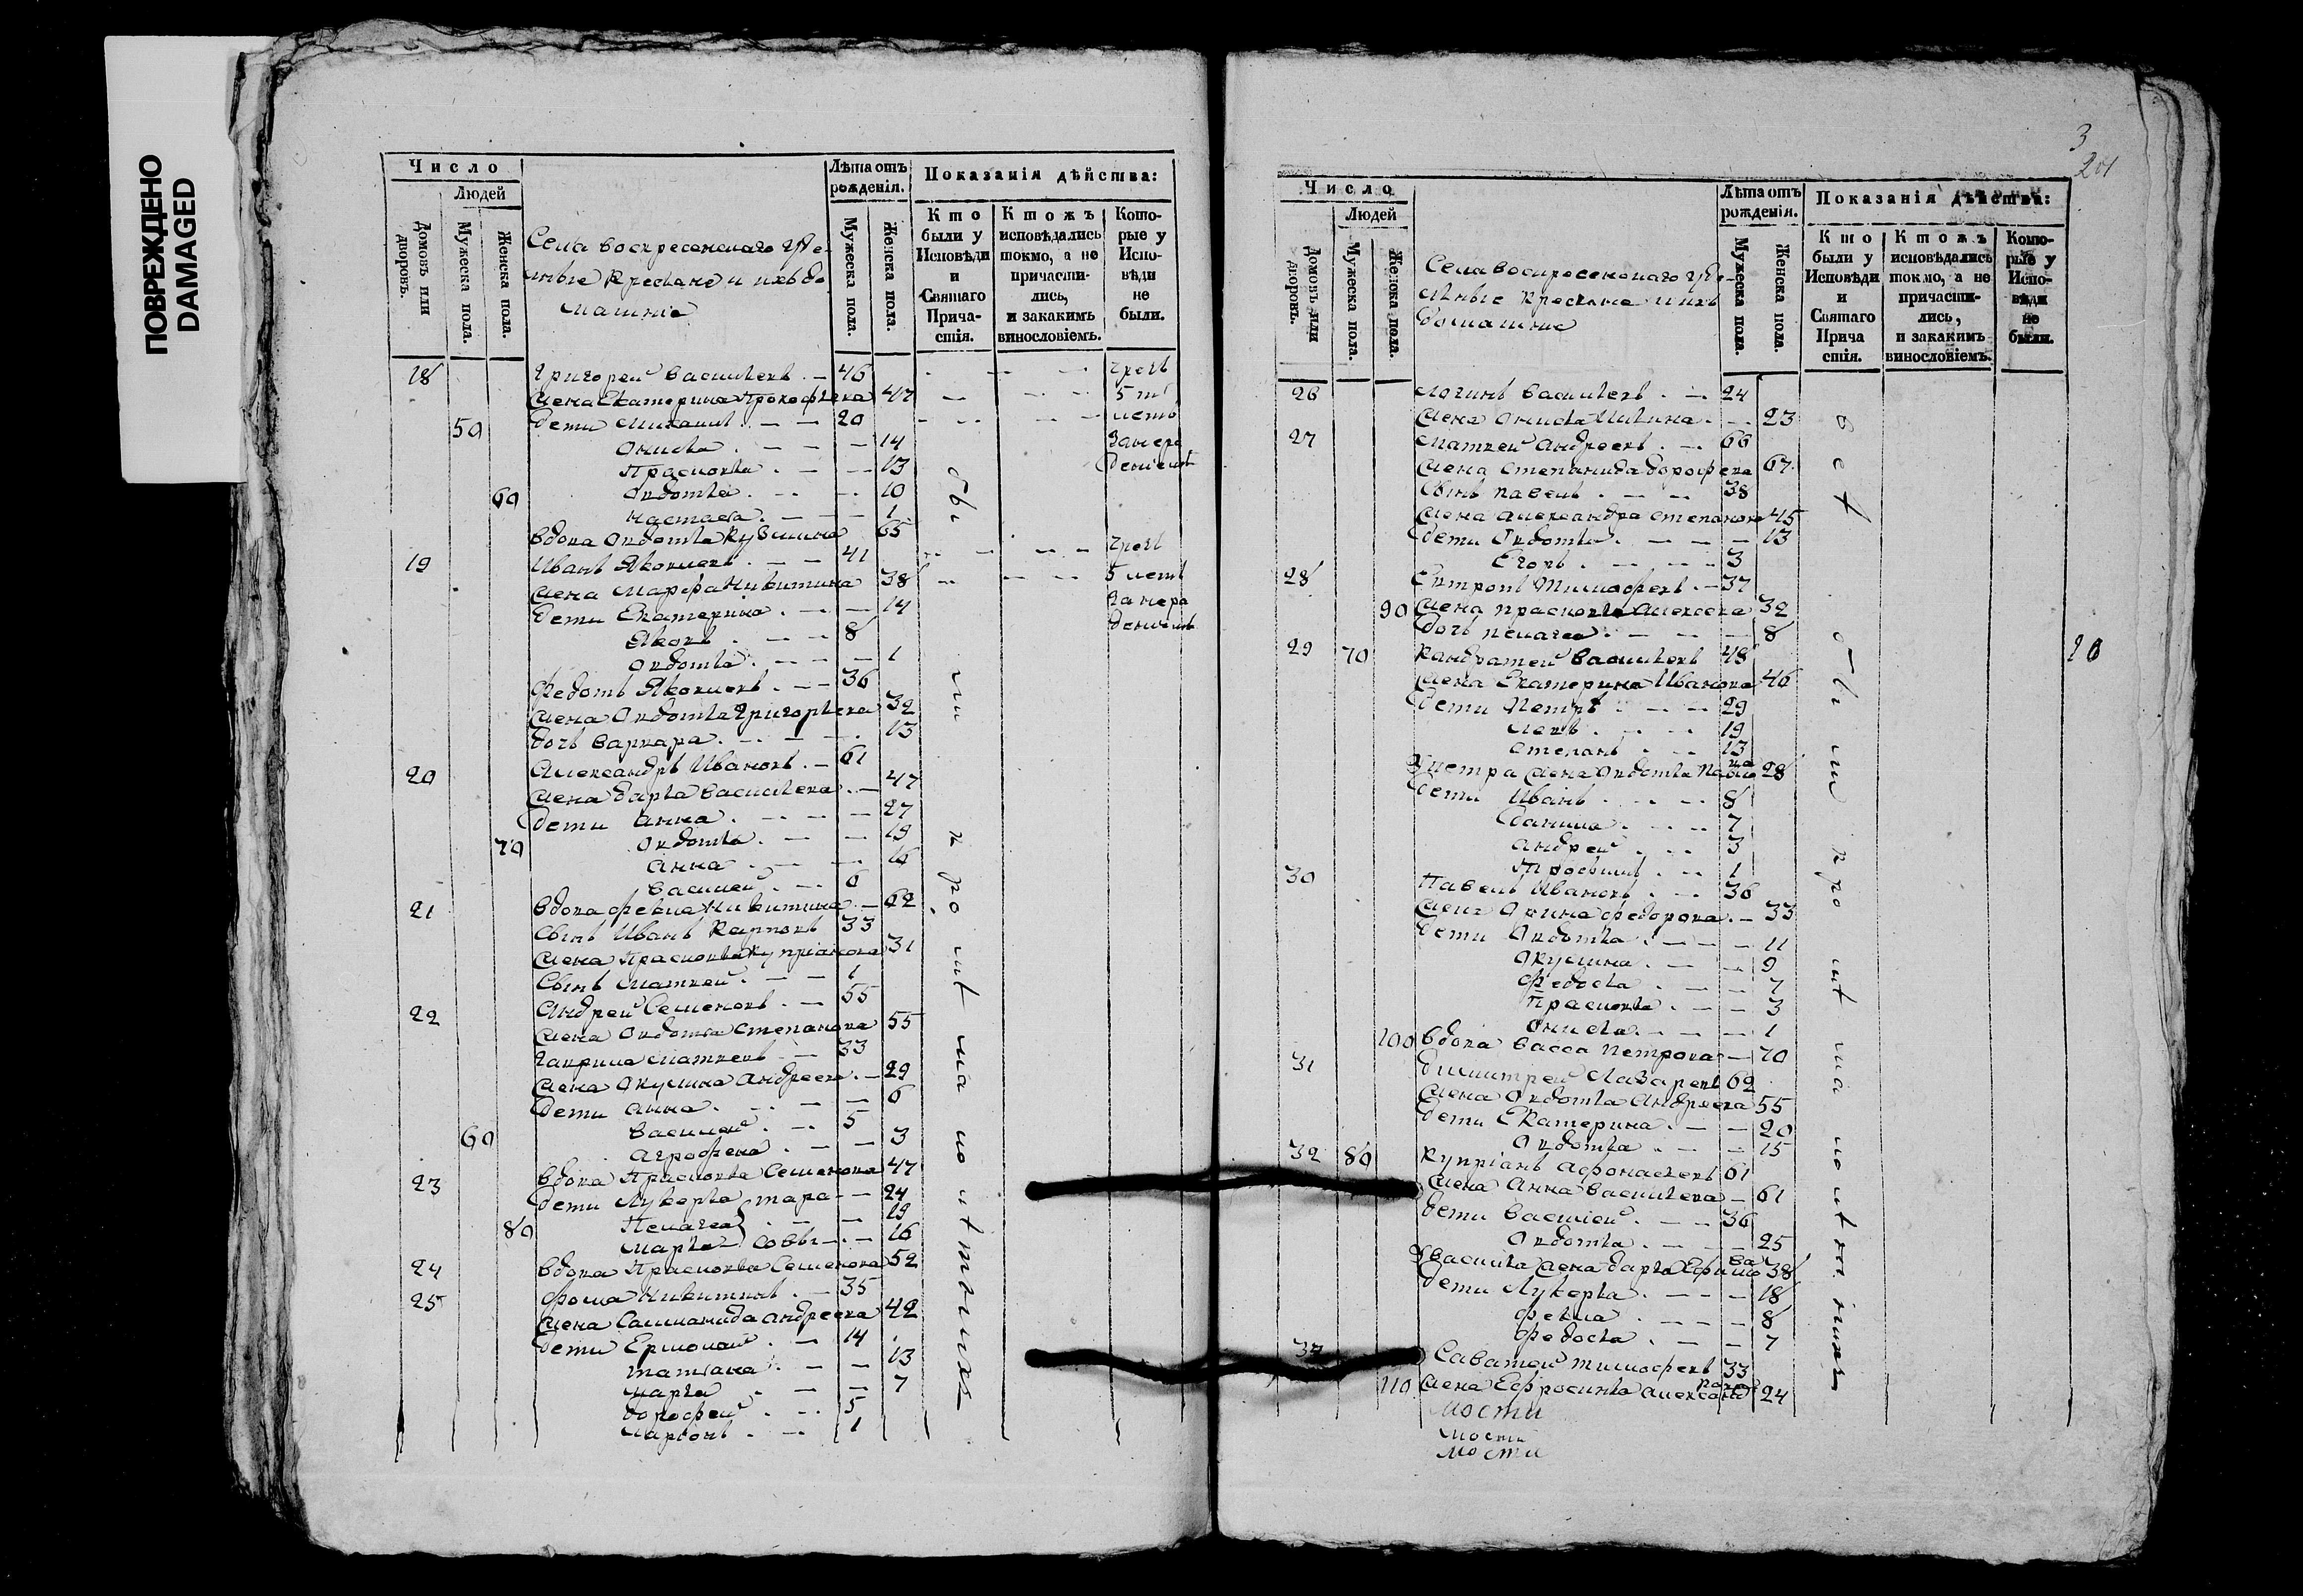 ПОВРЕЖДЕНО
DAMAGED
Число
Людей
Домовъ или дворовъ.
Мужеска пола.
Женска пола.
Села воскресенскаго
крестьяне и ихъ до
машние
Лѣта отъ рожденія.
Мужеска пола.
Женска пола.
Показанія дѣйства:
Кто были у Исповѣди и Святаго Причастія.
Ктожъ исповѣдались токмо, а не причастились, и закакимъ винословіемъ.
Которые у Исповѣди не были.
18 Григорей васильевъ 46
жена Екатерина Прокофьева 47 5 ть
50 дети Михаилъ 20 летъ
Анисья 14
Прасковья 13
60 Авдотья 10
Настасья 1
вдова Авдотья Кузмина 65
19 Иванъ Яковлевъ 41
жена Марфа Никитина 38 5 летъ
дети Екатерина 14
Яковъ 8
Авдотья 1
Федотъ Яковлевъ 36
жена Авдотья Григорьева 32
дочь варвара 13
20 Александръ Ивановъ 61
жена дарья васильева 47
дети Анна 27
70 Авдотья 19
Анна 16
василей 6
21 вдова фекла Никитина 62
сынъ Иванъ Карповъ 33
жена Прасковья Купріянова 31
сынъ Матвей 1
22 Андрей Семеновъ 55
жена Авдотья степанова 55
гаврила Матвеевъ 33
жена Акулина Андреева 29
дети Анна 6
60 василей 5
Аграфена 3
23 вдова Прасковья Семенова 47
дети Лукерья тара 24
80 Пелагея 19
Марья совы 16
24 вдова Прасковья Семенова 52
25 фома Никитинъ 35
жена Саломанида андреева 42
дети Ермолай 14
татьяна 13
марья 7
дорофей 5
Ларіонъ 1
бы ли в ро ит ма но
3
201
Число
Людей
Домовъ или дворовъ.
Мужеска пола.
Женска пола.
Села воскресенскаго
крестьяне и ихъ
домашние
Лѣта отъ рожденія.
Мужеска пола.
Женска пола.
Показанія дѣйства:
Кто были у Исповѣди и Святаго Прича стія.
Ктожъ исповѣдались токмо, а не причастились, и закакимъ винословіемъ.
Которые у Исповѣди не были.
26 логинъ васильевъ 24
жена Анисья 23
27 матвей андреевъ 66
жена степанида дорофеева 67
сынъ павелъ 38
жена александра степанова 45
дети Авдотья 13
Егоръ 3
28 Тимофеевъ 37
90 жена прасковья Алексеева 32
дочь пелагея 8
29 70 Кандратей васильевъ 48 20
жена Екатерина Иванова 46
дети Петръ 29
левъ 19
степанъ 13
У петра жена Авдотья Павлова 28
дети Иванъ 8
данила 7
андрей 3
1
30 Павелъ Ивановъ 36
жена Арина федорова 33
дети Авдотья 11
Акулина 9
федосья 7
Прасковья 3
Анисья 1
100 вдова васса петрова 70
31 димитрей Лазаревъ 62
жена Авдотья Андреева 55
дети Екатерина 20
Авдотья 15
32 80 Купріянъ Афонасьевъ 61
жена Анна васильева 61
дети василей 36
Авдотья 25
У василья жена дарья Ефимова 38
дети Лукерья 18
фекла 8
федосья 7
33 Саватей тимофеевъ 33
110 жена Ефросинья александрова 24
мости
мости
мости